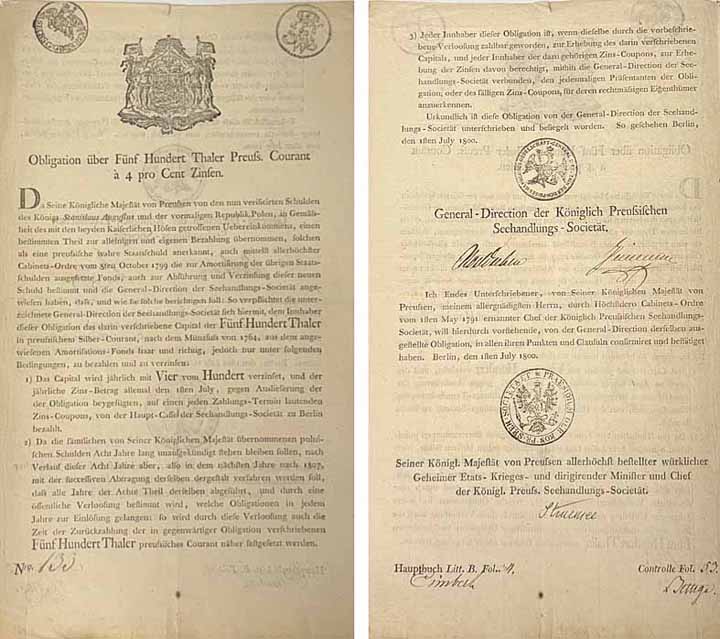 Obligation über Fünf Hundert Thaler Preuss. Courant
à 4 pro Cent Zinsen.
Da Seine Königliche Majestät von Preussen von den nun verificirten Schulden
des Königs Stanislaus Augustus und der vormaligen Republik Polen, in Gemäss-
heit des mit den beyden Kaiserlichen Höfen getroffenen Uebereinkommens, einen
bestimmten Theil zur alleinigen und eigenen Bezahlung übernommen, solchen
als eine preussische wahre Staatsschuld anerkannt, auch mittelst allerhöchster
Cabinets-Ordre vom October 1799 die zur Amortisirung der übrigen Staats-
schulden ausgesetzte Fonds, auch zur Abführung und Verzinsung dieser neuen
Schuld bestimmt und die General-Direction der Seehandlungs-Societät ange-
wiesen haben, dass, und wie sie solche berichtigen soll: So verpflichtet die unter-
zeichnete General-Direction der Seehandlungs-Societät sich hiermit, dem Innhaber
dieser Obligation das darin verschriebene Capital der Fünf Hundert Thaler
in preussischem Silber-Courant, nach dem Münzfuss von 1764, aus dem ange-
wiesenen Amortisations-Fonds baar und richtig, jedoch nur unter folgenden
Bedingungen, zu bezahlen und zu verzinsen:
1) Das Capital wird jährlich mit Vier vom Hundert verzinset, und der
jährliche Zins-Betrag allemal den 1sten July, gegen Auslieferung der
der Obligation beygefügten, auf einen jeden Zahlungs-Termin lautenden
Zins-Coupons, von der Haupt-Casse der Seehandlungs-Societät zu Berlin
bezahlt.
2) Da die sämtlichen von Seiner Königlichen Majestät übernommenen polni-
schen Schulden Acht Jahre lang unaufgekündigt stehen bleiben sollen, nach
Verlauf dieser Acht Jahre aber, also in dem nächsten Jahre nach 1807,
mit der successiven Abtragung derselben dergestalt verfahren werden soll,
dass alle Jahre der Achte Theil derselben abgeführt, und durch eine
öffentliche Verloosung bestimmt wird, welche Obligationen in jedem
Jahre zur Einlösung gelangen: so wird durch diese Verloosung auch die
Zeit der Zurückzahlung der in gegenwärtiger Obligation verschriebenen
Fünf Hundert Thaler preussisches Courant näher festgesetzt werden.
Nro.
3) Jeder Innhaber dieser Obligation ist, wenn dieselbe durch die vorbeschrie-
bene Verloosung zahlbar geworden, zur Erhebung des darin verschriebenen
Capitals, und jeder Innhaber der dazu gehörigen Zins-Coupons, zur Erhe-
bung der Zinsen davon berechtigt, mithin die General-Direction der See-
handlungs-Societät verbunden, den jedesmaligen Präsentanten der Obli-
gation, oder des fälligen Zins-Coupons, für deren rechtmässigen Eigenthümer
anzuerkennen.
Urkundlich ist diese Obligation von der General-Direction der Seehand-
lungs-Societät unterschrieben und besiegelt worden. So geschehen Berlin,
den 1sten July 1800.
General-Direction der Königlich Preussischen
Seehandlungs-Societät.
Ich Endes Unterschriebener, von Seiner Königlichen Majestät von
Preussen, meinem allergnädigsten Herrn, durch Höchstdero Cabinets-Ordre
vom 1sten May 1791 ernannter Chef der Königlich Preussischen Seehandlungs-
Societät, will hierdurch vorstehende, von der General-Direction derselben aus-
gestellte Obligation, in allen ihren Punkten und Clausuln confirmiret und bestätiget
haben. Berlin, den 1sten July 1800.
Seiner Königl. Majestät von Preussen allerhöchst bestellter würklicher
Geheimer Etats- Krieges- und dirigirender Minister und Chef
der Königl. Preuss. Seehandlungs-Societät.
Struensee
Hauptbuch Litt. B. Fol. 4. Controlle Fol. 53.